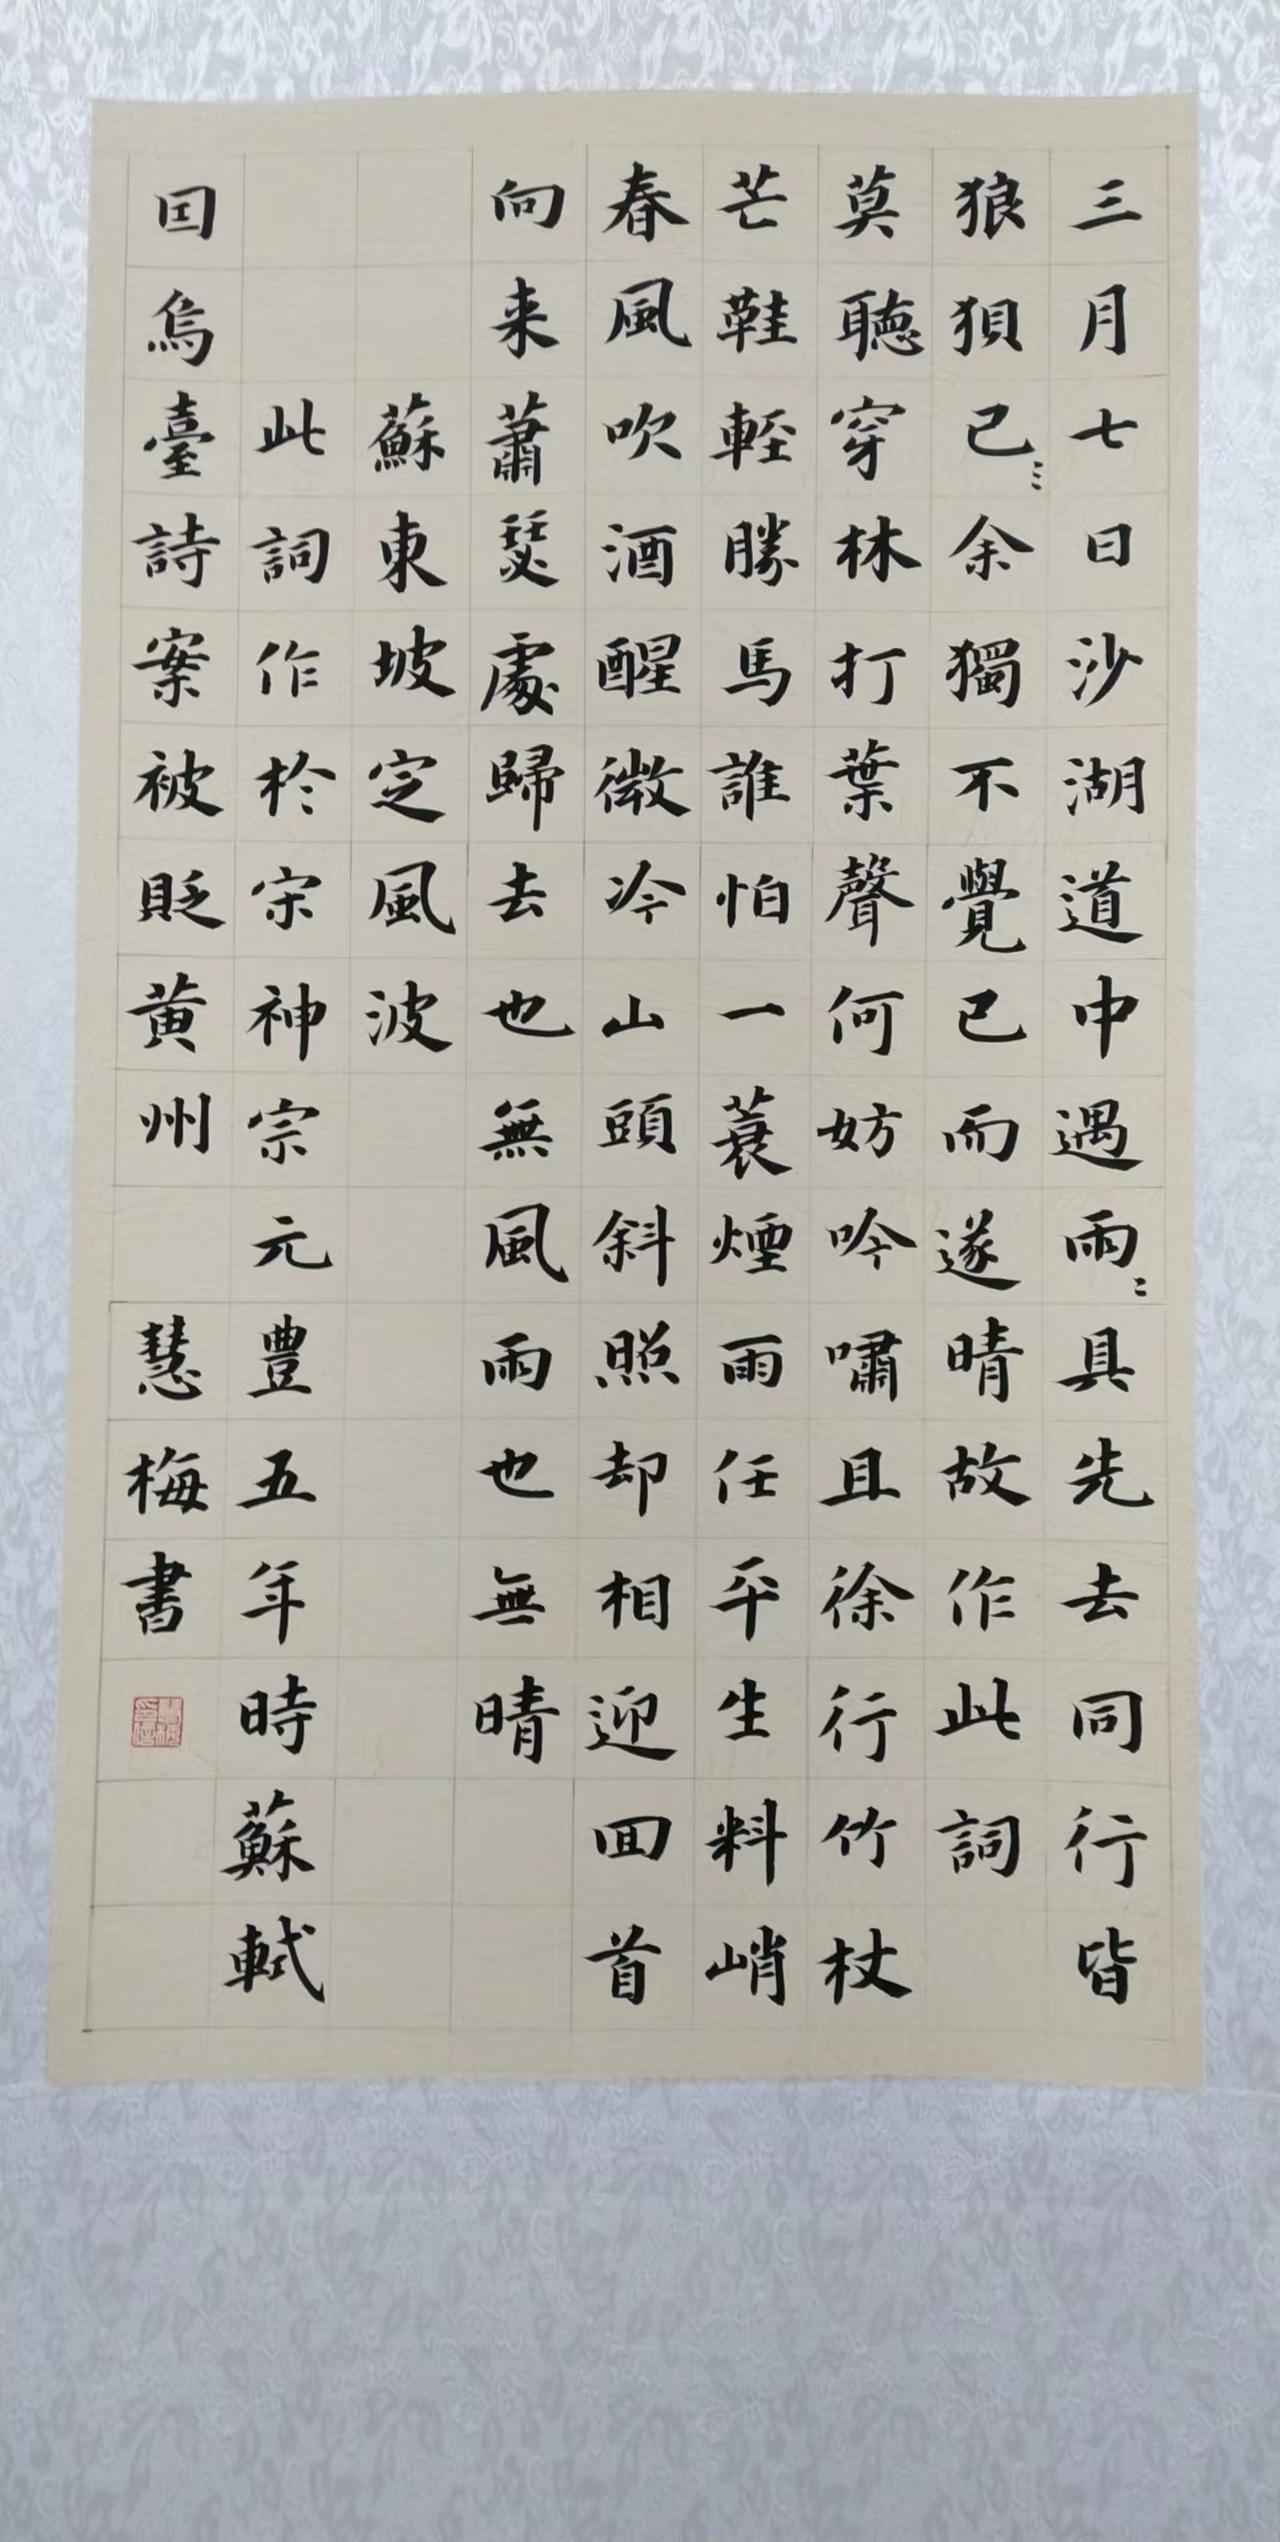 三月七日沙湖道中遇雨〻具先去同行皆
狼狽己〻余獨不覺已而遂晴故作此詞
莫聽穿林打葉聲何妨吟嘯且徐行竹杖
芒鞋輕勝馬誰怕一蓑煙雨任平生料峭
春風吹酒醒微冷山頭斜照却相迎回首
向来蕭瑟處歸去也無風雨也無晴
蘇東坡定風波
此詞作於宋神宗元豊五年時蘇軾
因烏臺詩案被貶黄州 慧梅書